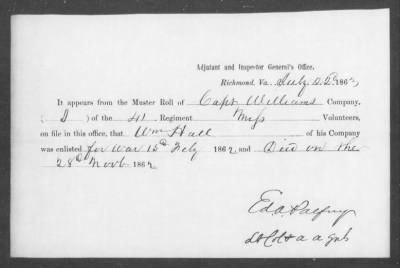 Adjutant and Inspector General's Office,
Richmond, Va. July 22d 1863,
It appears from the Muster Roll of Capt Williams Company,
(D) of the 41 Regiment Miss Volunteers,
on file in this office, that Wm Hall of his Company
was enlisted for War 15th Feby 1862 and Died on the
28th Novb 1862
Ed A Palfrey
Lt Col & a a Genl